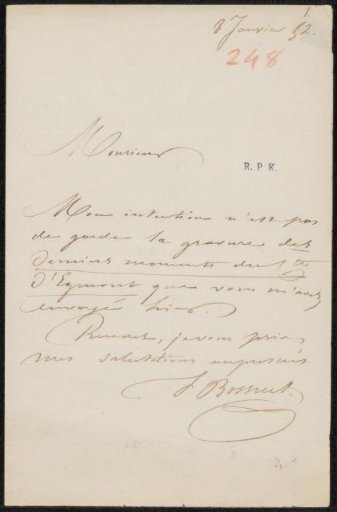 1.
8 Janvier 52.
248
Monsieur
R. P. K.
Mon intention n'est pas
de garder la gravure des
derniers moments du Cte
d'Egmont que vous m'avez
envoyée hier.
Recevez, je vous prie,
mes salutations empressées